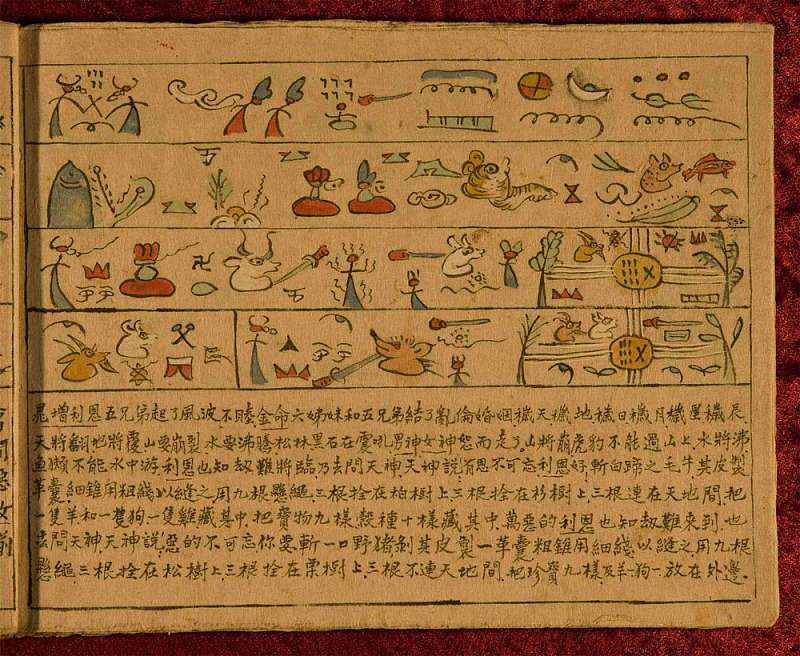 增利恩五兄弟起了風波不睦金命六姊妹和五兄弟結了亂倫婚姻穢天穢地穢日穢月穢星穢辰
天將翻地將覆山要崩裂水要沸騰松林里石在震吼男神女神怒而走了.山將崩虎豹不能過山上水將沸
魚獺不能水中游利恩也知劫難將臨乃去問天神天神說有恩不可忘利恩好斬白蹄之毛牛其皮製
革囊.細錐用粗綫以縫之用九根懸繩.三根拴在柏樹上三根拴在杉樹上三根連在天地間.把
一隻羊和一隻狗一隻雞藏其中.把寶物九樣.穀種十樣藏其中.萬惡的利恩也知劫難來到.也
去問天神天神說.惡的不可忘你要斬一口野豬剝其皮製一革囊粗錐用細綫以縫之用九根
懸繩.三根拴在松樹上.三根拴在栗樹上.三根不連天地間.把珍寶九樣及羊一狗一放在外邊.